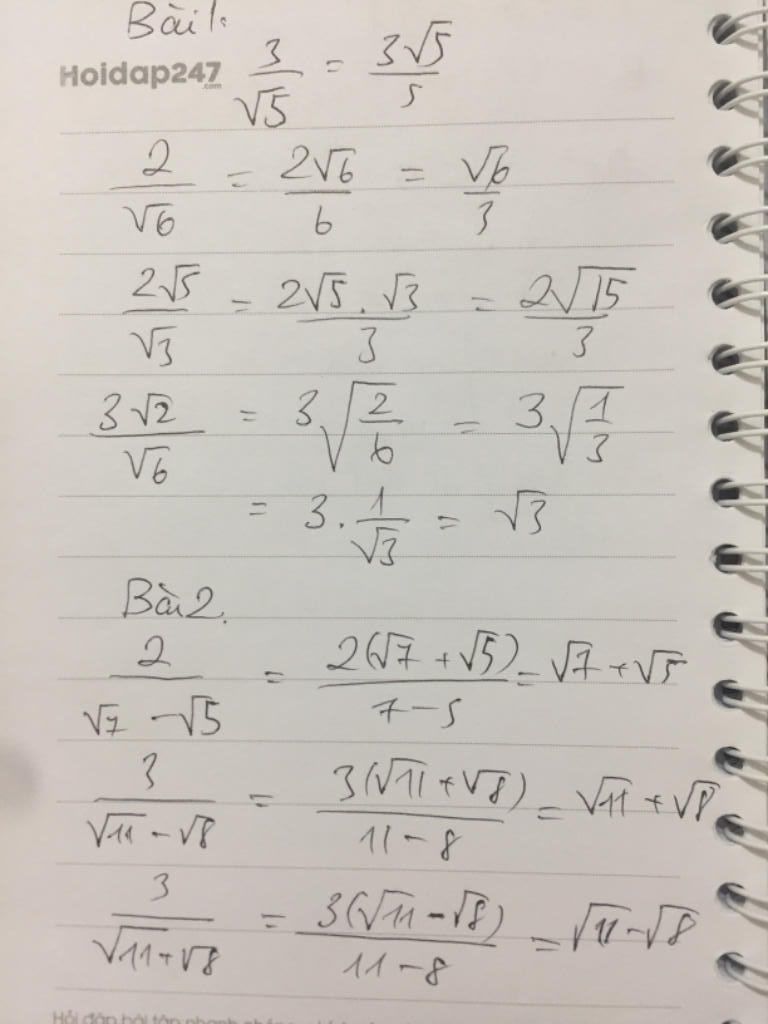 Bài 1:
Hoidap247.com 3/√5 = 3√5/5
2/√6 = 2√6/6 = √6/3
2√5/√3 = 2√5.√3/3 = 2√15/3
3√2/√6 = 3√(2/6) = 3√(1/3)
= 3.1/√3 = √3
Bài 2.
2/(√7 - √5) = 2(√7 + √5)/(7 - 5) = √7 + √5
3/(√11 - √8) = 3(√11 + √8)/(11 - 8) = √11 + √8
3/(√11 + √8) = 3(√11 - √8)/(11 - 8) = √11 - √8